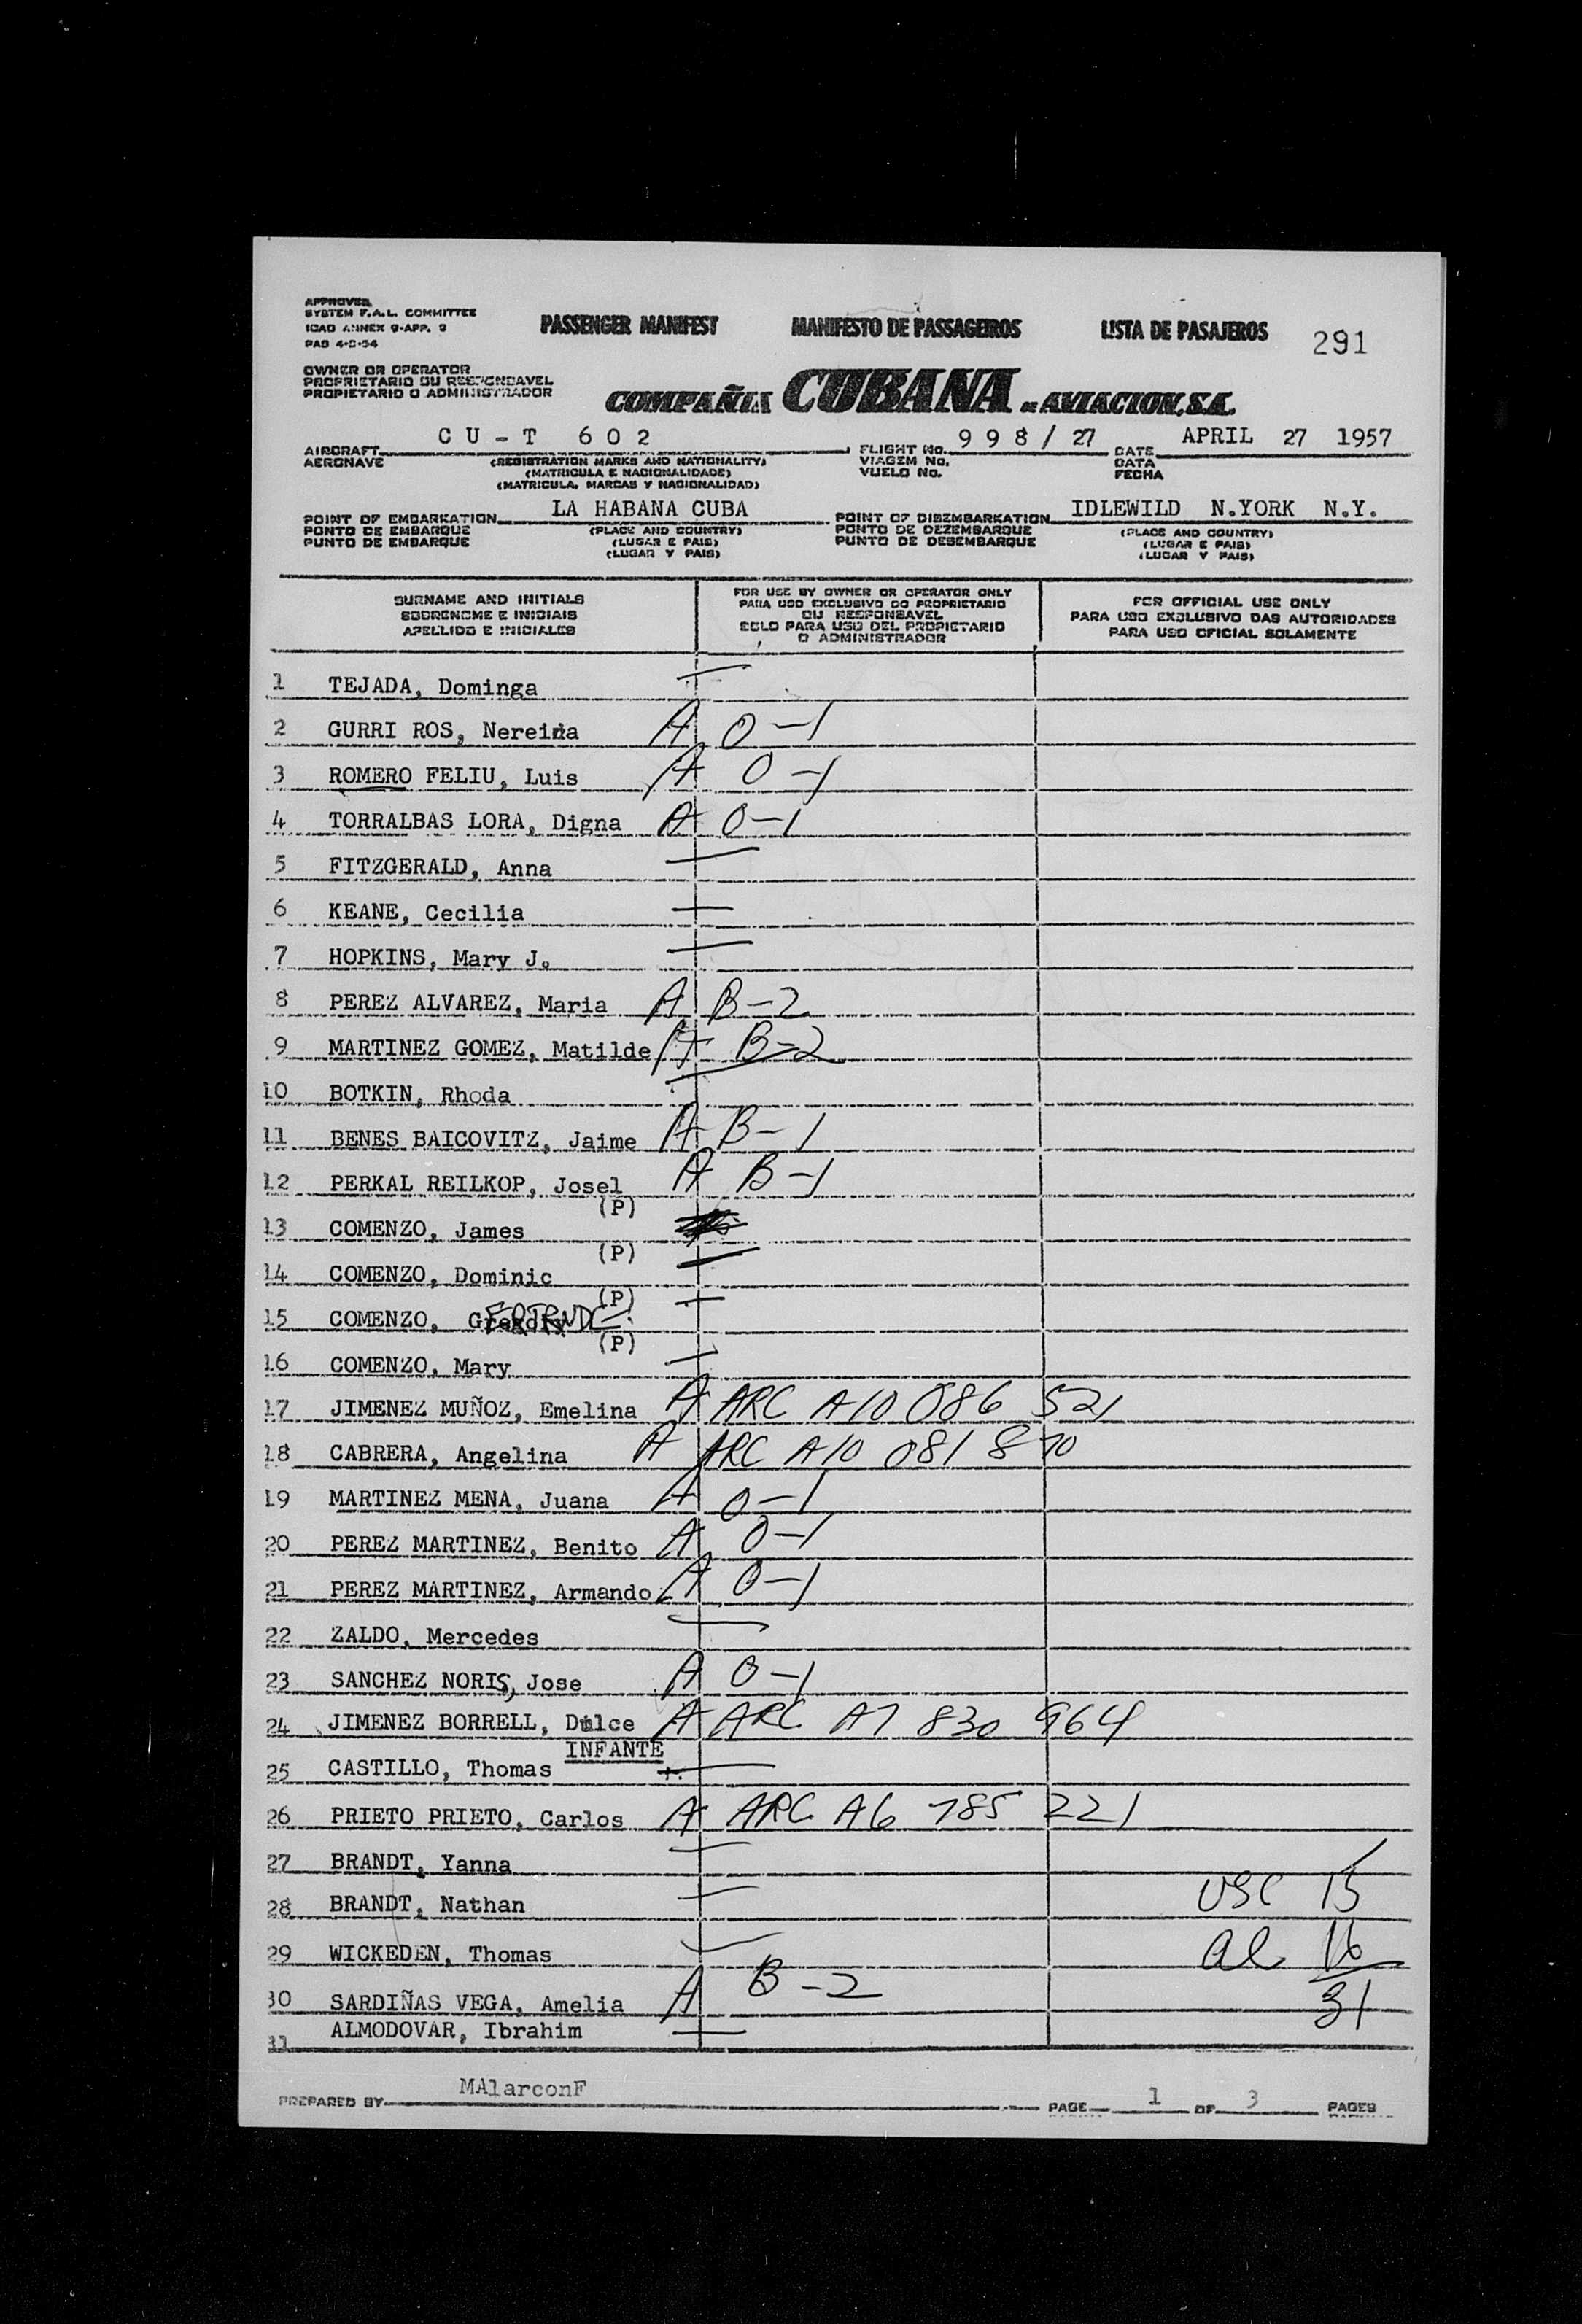 APPROVED
SYSTEM F.A.L. COMMITTEE
ICAO ANNEX 9-APP. 3
PAS 4-C-54
PASSENGER MANIFEST MANIFESTO DE PASSAGEIROS LISTA DE PASAJEROS 291
OWNER OR OPERATOR
PROPRIETARIO OU RESPONSAVEL
PROPIETARIO O ADMINISTRADOR
COMPAÑIA CUBANA DE AVIACION, S.A.
AIRCRAFT CU-T 602 FLIGHT No. 998/27 DATE APRIL 27 1957
AERONAVE (REGISTRATION MARKS AND NATIONALITY) VIAGEM No. DATA
(MATRICULA E NACIONALIDADE) VUELO No. FECHA
(MATRICULA, MARCAS Y NACIONALIDAD)
POINT OF EMBARKATION LA HABANA CUBA POINT OF DISEMBARKATION IDLEWILD N.YORK N.Y.
PONTO DE EMBARQUE (PLACE AND COUNTRY) PONTO DE DEZEMBARQUE (PLACE AND COUNTRY)
PUNTO DE EMBARQUE (LUGAR E PAIS) PUNTO DE DESEMBARQUE (LUGAR E PAIS)
(LUGAR Y PAIS) (LUGAR Y PAIS)
SURNAME AND INITIALS
SOBRENOME E INICIAIS
APELLIDO E INICIALES
FOR USE BY OWNER OR OPERATOR ONLY
PARA USO EXCLUSIVO DO PROPRIETARIO
OU RESPONSAVEL
SOLO PARA USO DEL PROPIETARIO
O ADMINISTRADOR
FOR OFFICIAL USE ONLY
PARA USO EXCLUSIVO DAS AUTORIDADES
PARA USO OFICIAL SOLAMENTE
1 TEJADA, Dominga
2 GURRI ROS, Nereida A O-1
3 ROMERO FELIU, Luis A O-1
4 TORRALBAS LORA, Digna A O-1
5 FITZGERALD, Anna
6 KEANE, Cecilia
7 HOPKINS, Mary J.
8 PEREZ ALVAREZ, Maria A B-2
9 MARTINEZ GOMEZ, Matilde A B-2
10 BOTKIN, Rhoda
11 BENES BAICOVITZ, Jaime A B-1
12 PERKAL REILKOP, Josel A B-1
13 COMENZO, James (P)
14 COMENZO, Dominic (P)
15 COMENZO, GERTRUDE (P)
16 COMENZO, Mary (P)
17 JIMENEZ MUÑOZ, Emelina A ARC A10 086 521
18 CABRERA, Angelina A ARC A10 081 870
19 MARTINEZ MENA, Juana A O-1
20 PEREZ MARTINEZ, Benito A O-1
21 PEREZ MARTINEZ, Armando A O-1
22 ZALDO, Mercedes
23 SANCHEZ NORIS, Jose A O-1
24 JIMENEZ BORRELL, Dulce A ARC A7 830 964
25 CASTILLO, Thomas INFANTE
26 PRIETO PRIETO, Carlos A ARC A6 785 221
27 BRANDT, Yanna
28 BRANDT, Nathan USC 15
29 WICKEDEN, Thomas al 16
30 SARDIÑAS VEGA, Amelia A B-2 31
31 ALMODOVAR, Ibrahim
PREPARED BY MAlarconF PAGE 1 OF 3 PAGES